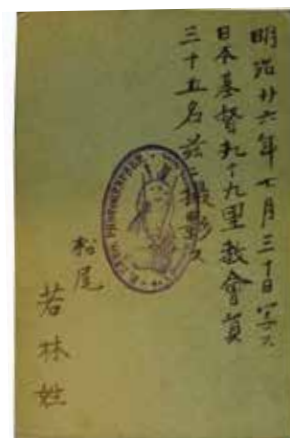 明治廿六年七月三十日写ス
日本基督九十九里教會員
三十五名茲ニ撮影ス
松尾
若林姓